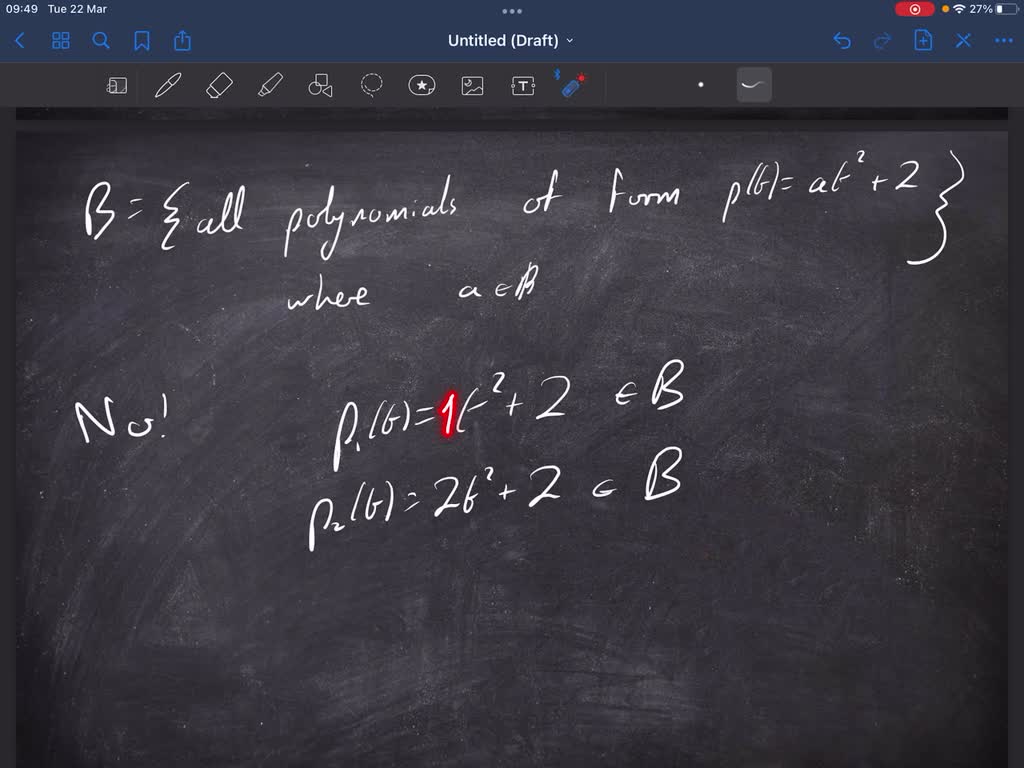 09:49 Tue 22 Mar
27%
Untitled (Draft)
T
B = { all polynomials of form p(t) = at² + 2 }
where a ∈ ℝ
No!
p₁(t) = 1t² + 2 ∈ B
p₂(t) = 2t² + 2 ∈ B